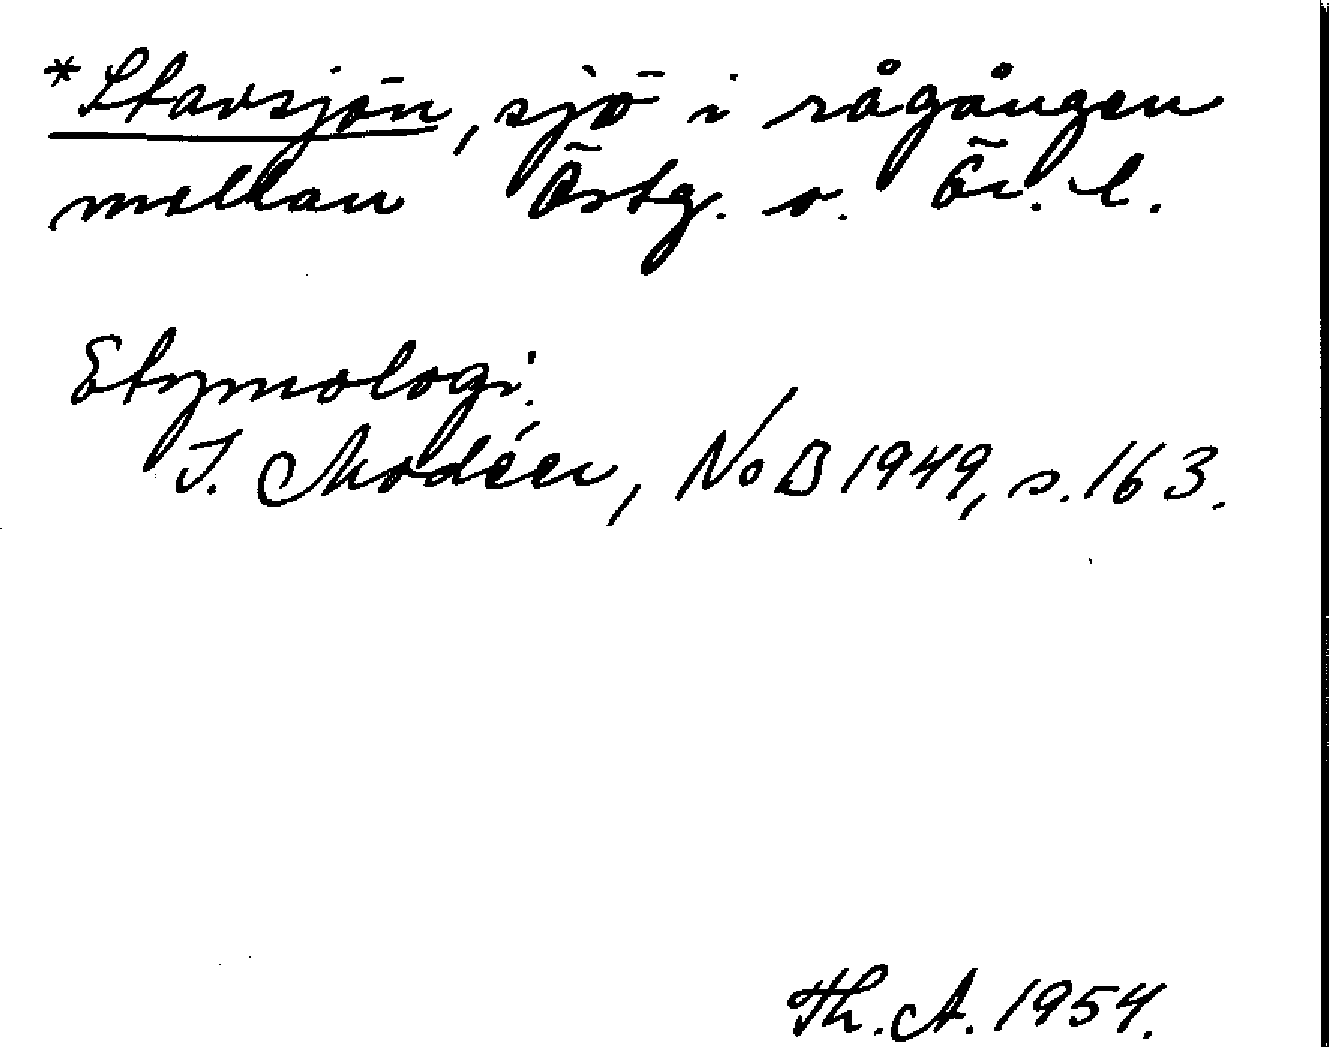 *Stavsjön, sjö i rågången
mellan Östg. o. Ör. l.
Etymologi.
I. Modéer, NoB 1949, s. 163.
Th. A. 1954.